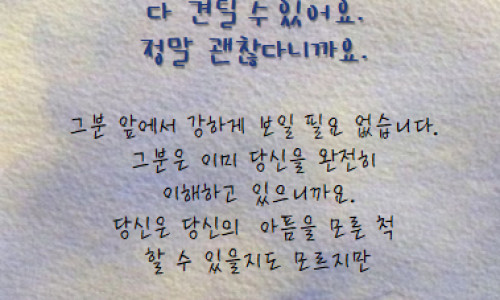 다 견딜 수 있어요.
정말 괜찮다니까요.
그분 앞에서 강하게 보일 필요 없습니다.
그분은 이미 당신을 완전히
이해하고 있으니까요.
당신은 당신의 아픔을 모른 척
할 수 있을지도 모르지만